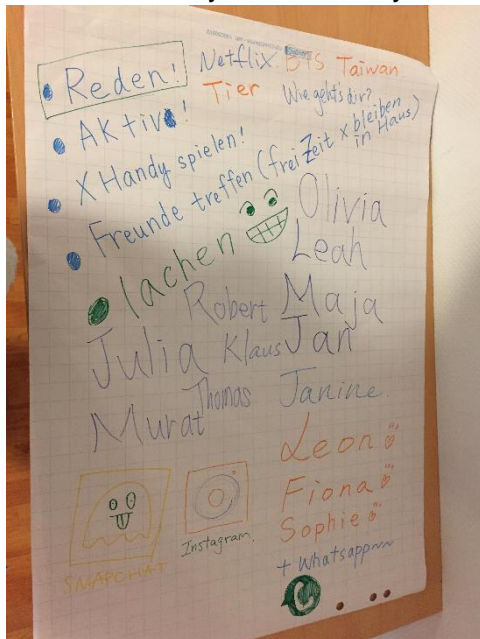 Reden!
Netflix BTS Taiwan
Tier
Wie geht's dir?
Aktiv!
X Handy spielen!
Freunde treffen (freizeit x bleiben
in Haus)
lachen
Olivia
Leah
Robert Maja
Julia Klaus Jan
Thomas Janine
Murat
Leon
Fiona
Sophie
SNAPCHAT
Instagram
+ Whatsapp~~